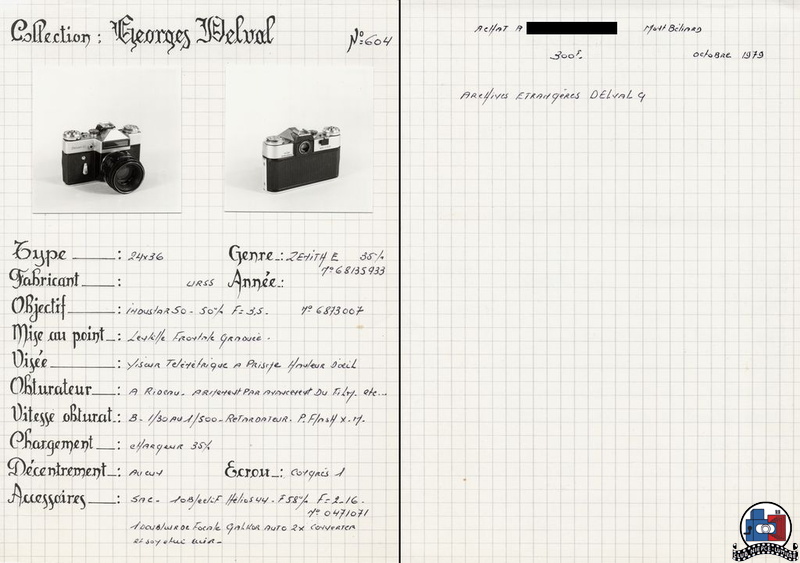 Collection : Georges Delval N° 604
Type : 24x36 Genre : ZENITH E 35%
N° 68135933
Fabricant : URSS Année :
Objectif : industar 50 - 50% F=3,5. N° 6873007
Mise au point : Lentille Frontale Graduée.
Visée : Viseur Télémétrique A Prisme Hauteur D'oeil
Obturateur : A Rideau - Armement Par avancement Du Film. etc...
Vitesse obturat. : B - 1/30 AU 1/500 - Retardateur. P. Flash X.M.
Chargement : chargeur 35%
Décentrement : Aucun Ecrou : Congrès 1
Accessoires : SAC - 1 Objectif Helios 44 - F 58% F=2-16.
N° 0471071
1 Doubleur De Focale Auto 2x Converter
et son etui cuir.
Achat A Montbéliard
300F. octobre 1979
Archives Etrangères DELVAL 4